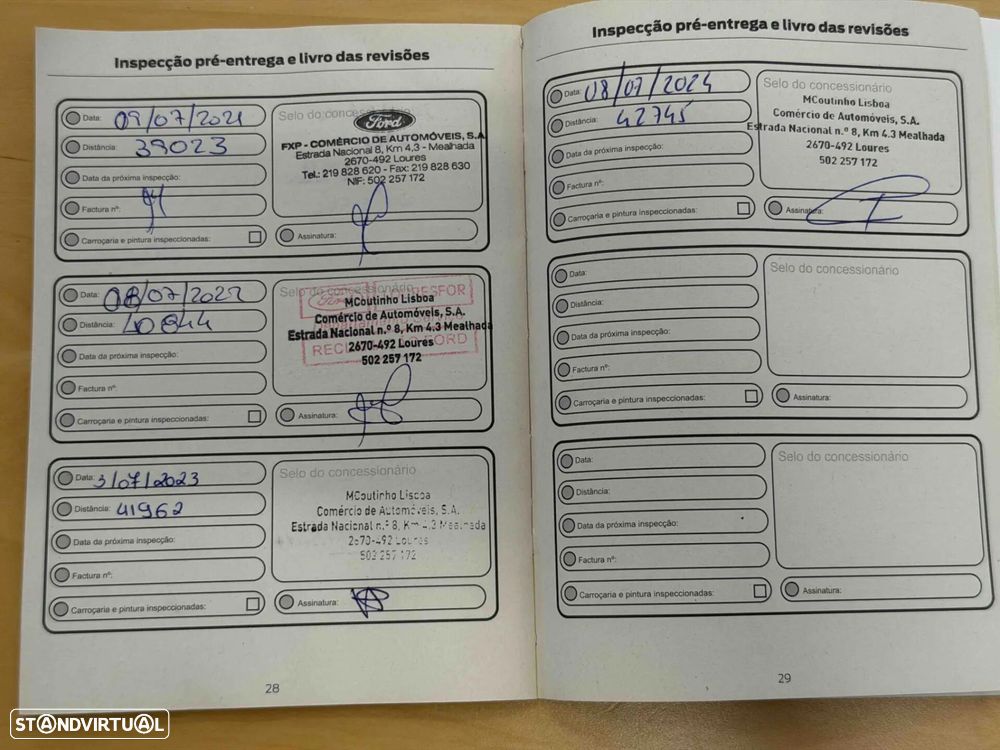 Inspecção pré-entrega e livro das revisões
Data: 09/07/2021
Distância: 39023
Data da próxima inspecção:
Factura nº:
Carroçaria e pintura inspeccionadas:
Selo do concessionário
Ford
FXP - COMÉRCIO DE AUTOMÓVEIS, S.A.
Estrada Nacional 8, Km 4,3 - Mealhada
2670-492 Loures
Tel.: 219 828 620 - Fax: 219 828 630
NIF: 502 257 172
Assinatura:
Data: 08/07/2022
Distância: 40844
Data da próxima inspecção:
Factura nº:
Carroçaria e pintura inspeccionadas:
Selo do concessionário
MCoutinho Lisboa
Comércio de Automóveis, S.A.
Estrada Nacional n.º 8, Km 4.3 Mealhada
2670-492 Loures
502 257 172
Assinatura:
Data: 3/07/2023
Distância: 41962
Data da próxima inspecção:
Factura nº:
Carroçaria e pintura inspeccionadas:
Selo do concessionário
MCoutinho Lisboa
Comércio de Automóveis, S.A.
Estrada Nacional n.º 8, Km 4.3 Mealhada
2670-492 Loures
502 257 172
Assinatura:
28
Inspecção pré-entrega e livro das revisões
Data: 08/07/2024
Distância: 42745
Data da próxima inspecção:
Factura nº:
Carroçaria e pintura inspeccionadas:
Selo do concessionário
MCoutinho Lisboa
Comércio de Automóveis, S.A.
Estrada Nacional n.º 8, Km 4.3 Mealhada
2670-492 Loures
502 257 172
Assinatura:
Data:
Distância:
Data da próxima inspecção:
Factura nº:
Carroçaria e pintura inspeccionadas:
Selo do concessionário
Assinatura:
Data:
Distância:
Data da próxima inspecção:
Factura nº:
Carroçaria e pintura inspeccionadas:
Selo do concessionário
Assinatura:
29
STANDVIRTUAL